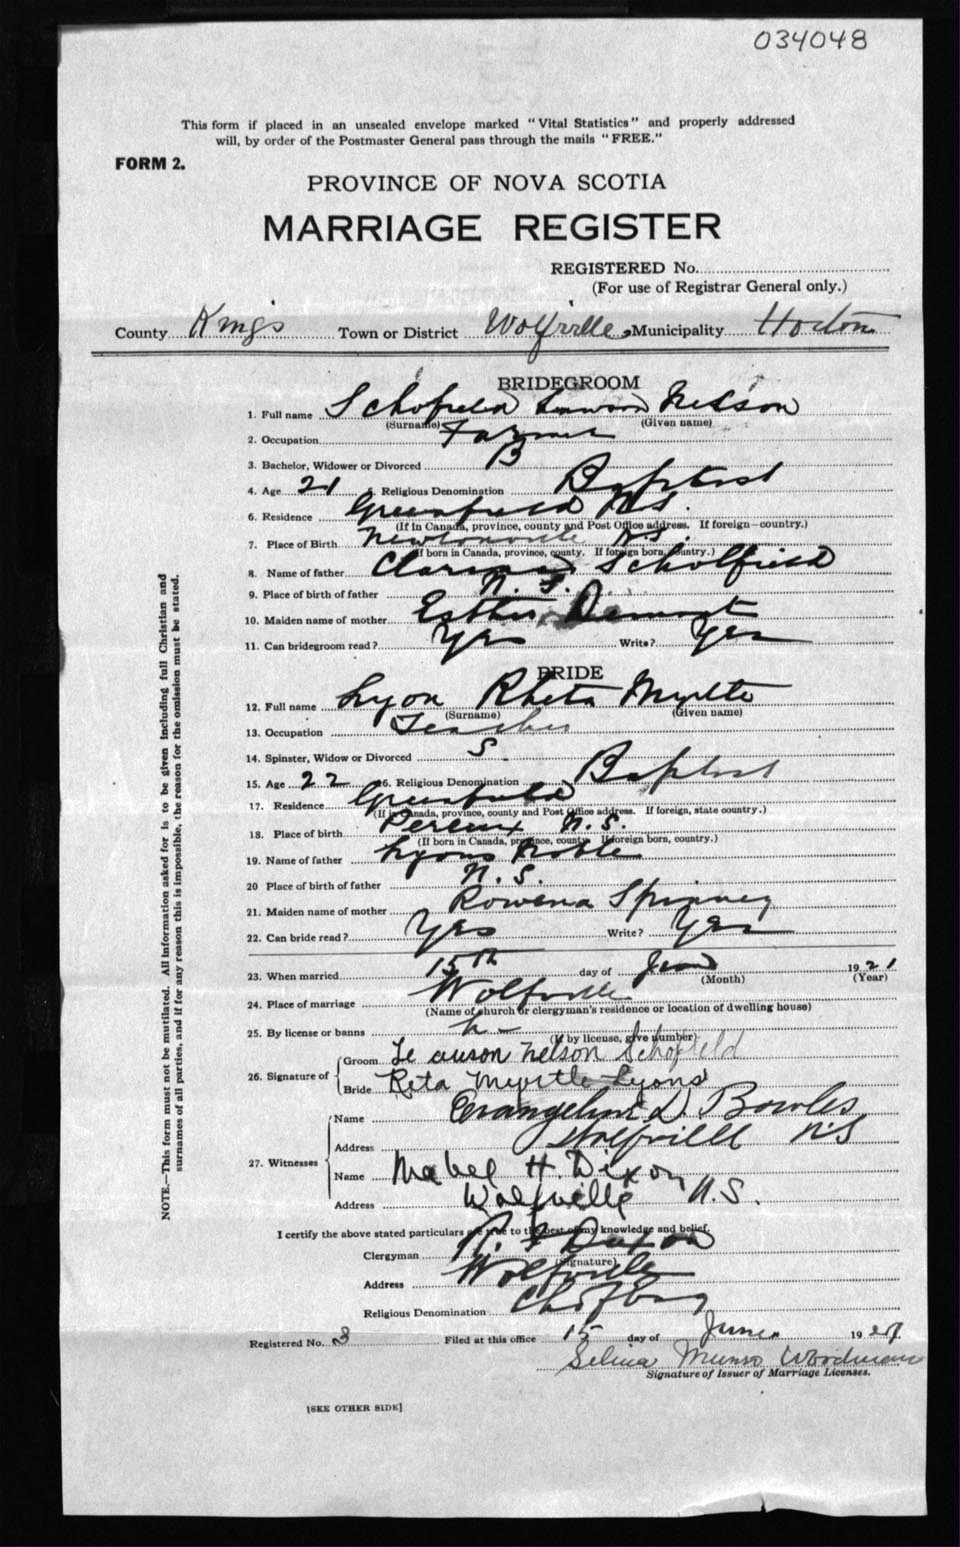 034048
This form if placed in an unsealed envelope marked "Vital Statistics" and properly addressed
will, by order of the Postmaster General pass through the mails "FREE."
FORM 2.
PROVINCE OF NOVA SCOTIA
MARRIAGE REGISTER
REGISTERED No.
(For use of Registrar General only.)
County Kings Town or District Wolfville Municipality Horton
BRIDEGROOM
1. Full name Schofield Lawson Nelson
(Surname) (Given name)
2. Occupation Farmer
3. Bachelor, Widower or Divorced B
4. Age 21 5. Religious Denomination Baptist
6. Residence Greenfield N.S.
(If in Canada, province, county and Post Office address. If foreign—country.)
7. Place of Birth Newtonville N.S.
(If born in Canada, province, county. If foreign born, country.)
8. Name of father Scholfield
9. Place of birth of father N.S.
10. Maiden name of mother Esther
11. Can bridegroom read? Yes Write? Yes
BRIDE
12. Full name Lyon Rheta Myrtle
(Surname) (Given name)
13. Occupation Teacher
14. Spinster, Widow or Divorced S
15. Age 22 16. Religious Denomination Baptist
17. Residence Greenfield
(If in Canada, province, county and Post Office address. If foreign, state country.)
18. Place of birth Pereux N.S.
(If born in Canada, province, county. If foreign born, country.)
19. Name of father Lyons Noble
20 Place of birth of father N.S.
21. Maiden name of mother Rowena Spinney
22. Can bride read? Yes Write? Yes
23. When married 15th day of June 1921
(Month) (Year)
24. Place of marriage Wolfville
(Name of church or clergyman's residence or location of dwelling house)
25. By license or banns L
(If by license, give number)
26. Signature of Groom Lawson Nelson Schofield
Bride Reta Myrtle Lyons
27. Witnesses Name Evangeline D. Bowles
Address Wolfville N.S
Name Mabel H. Dixon
Address Wolfville N.S.
I certify the above stated particulars are true to the best of my knowledge and belief.
Clergyman Dixon
(Signature)
Address Wolfville
Religious Denomination
Registered No. 3 Filed at this office 15 day of June 1921
Selina Munro Woodman
Signature of Issuer of Marriage Licenses.
[SEE OTHER SIDE]
NOTE.—This form must not be mutilated. All information asked for is to be given including full Christian and
surnames of all parties, and if for any reason this is impossible, the reason for the omission must be stated.